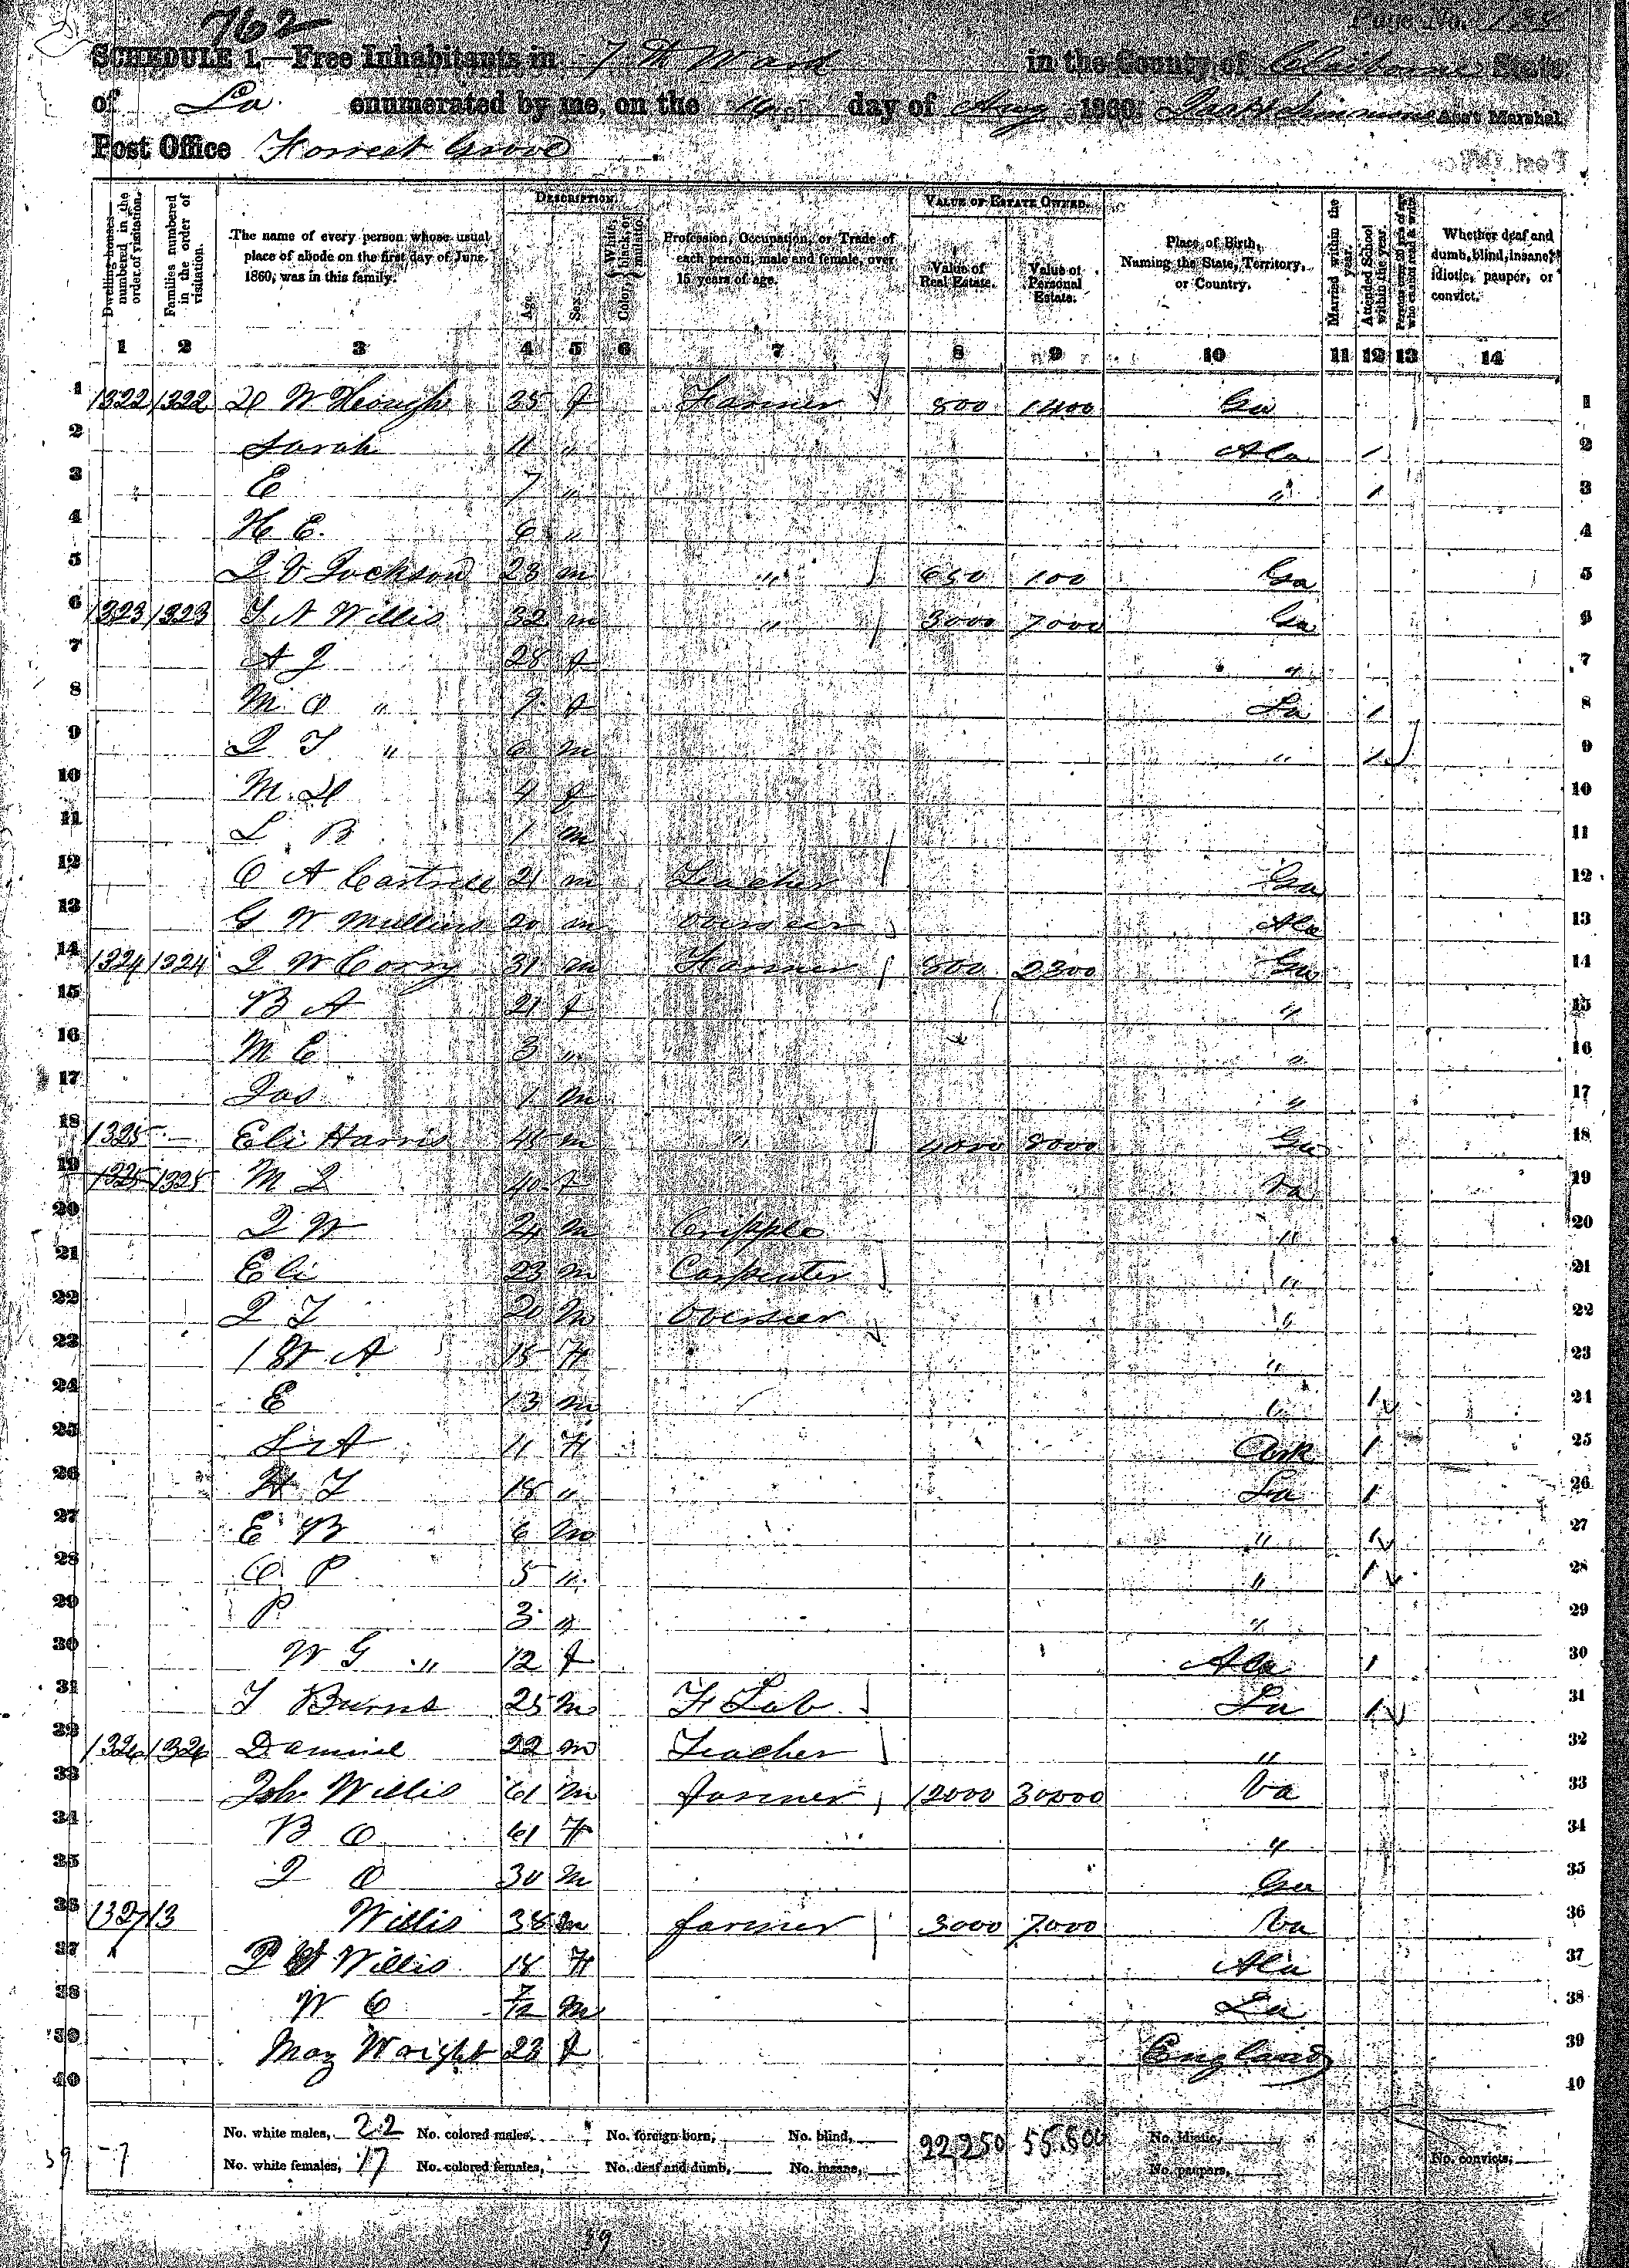 762
Page No.
SCHEDULE 1.—Free Inhabitants in 7th Ward in the County of Claiborne State
of La. enumerated by me, on the 16 day of Aug 1860. Simmons Ass't Marshal.
Post Office Forrest Grove
Dwelling-houses numbered in the order of visitation.
Families numbered in the order of visitation.
The name of every person whose usual place of abode on the first day of June, 1860, was in this family.
DESCRIPTION.
Age.
Sex.
Color, { White, black, or mulatto.
Profession, Occupation, or Trade of each person, male and female, over 15 years of age.
VALUE OF ESTATE OWNED.
Value of Real Estate.
Value of Personal Estate.
Place of Birth, Naming the State, Territory, or Country.
Married within the year.
Attended School within the year.
Persons over 20 y'rs of age who cannot read & write.
Whether deaf and dumb, blind, insane, idiotic, pauper, or convict.
1 2 3 4 5 6 7 8 9 10 11 12 13 14
1 1322 1322 W Hough 35 f Farmer 800 1400 Ga 1
2 Sarah 11 " Ala / 2
3 E 7 " " / 3
4 H E. 6 " 4
5 J Jackson 23 m " 650 100 Ga 5
6 1323 1323 T A Willis 32 m " 3000 7000 Ga 6
7 A J 28 f " 7
8 M O " 9 f La / 8
9 J T " 6 m " / 9
10 M. 4 f 10
11 L B 1 m 11
12 C A 21 m Teacher Ga 12
13 G W Mullins 20 m Overseer Ala 13
14 1324 1324 J W Corry 31 m Farmer 800 2300 Ga 14
15 B A 21 f " 15
16 M E 3 " " 16
17 Jas 1 m " 17
18 1325 — Eli Harris 45 m " 4000 8000 Ga 18
19 1325 1325 M J 40 f Va 19
20 J W 24 m Cripple " 20
21 Eli 23 m Carpenter " 21
22 J T 20 m Overseer " 22
23 A 15 F " 23
24 E 13 m " / 24
25 A 11 F Ark / 25
26 H T 18 " La / 26
27 E B 6 m " / 27
28 O P 5 " " / 28
29 P 3 " " 29
30 W G " 12 f Ala / 30
31 T Burns 25 m F Lab La / 31
32 1326 1326 22 m Teacher " 32
33 Joh Willis 61 m farmer 12000 30000 Va 33
34 B O 61 F " 34
35 J O 30 m Ga 35
36 1327 13 Willis 38 m farmer 3000 7000 Va 36
37 P Willis 18 F Ala 37
38 W C 7/12 m La 38
39 May Wright 23 f England 39
40 40
No. white males, 22 No. colored males, No. foreign born, No. blind, 22,250 55.800 No. idiotic,
39 7 No. white females, 17 No. colored females, No. deaf and dumb, No. insane, No. paupers, No. convicts,
39